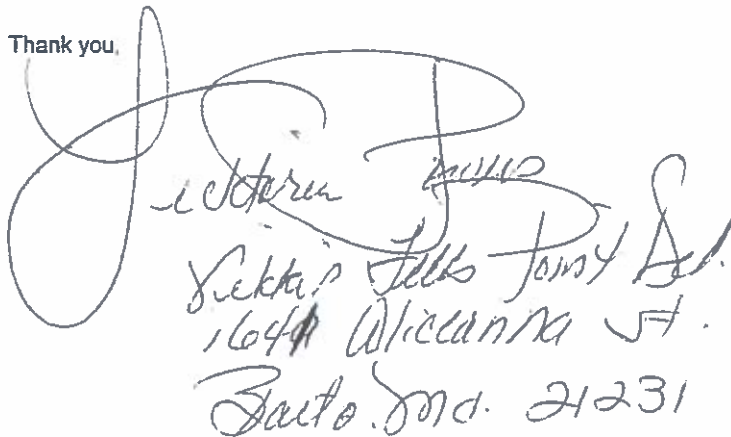 Thank you,
Victoria
Vikki's Fells Point Deli.
1641 Aliceanna St.
Balto. Md. 21231